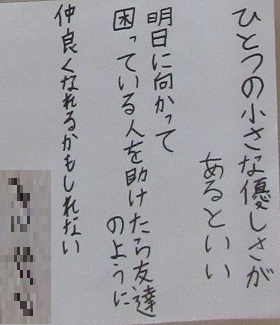 ひとつの小さな優しさが
あるといい
明日に向かって
困っている人を助けたら友達
のように
仲良くなれるかもしれない